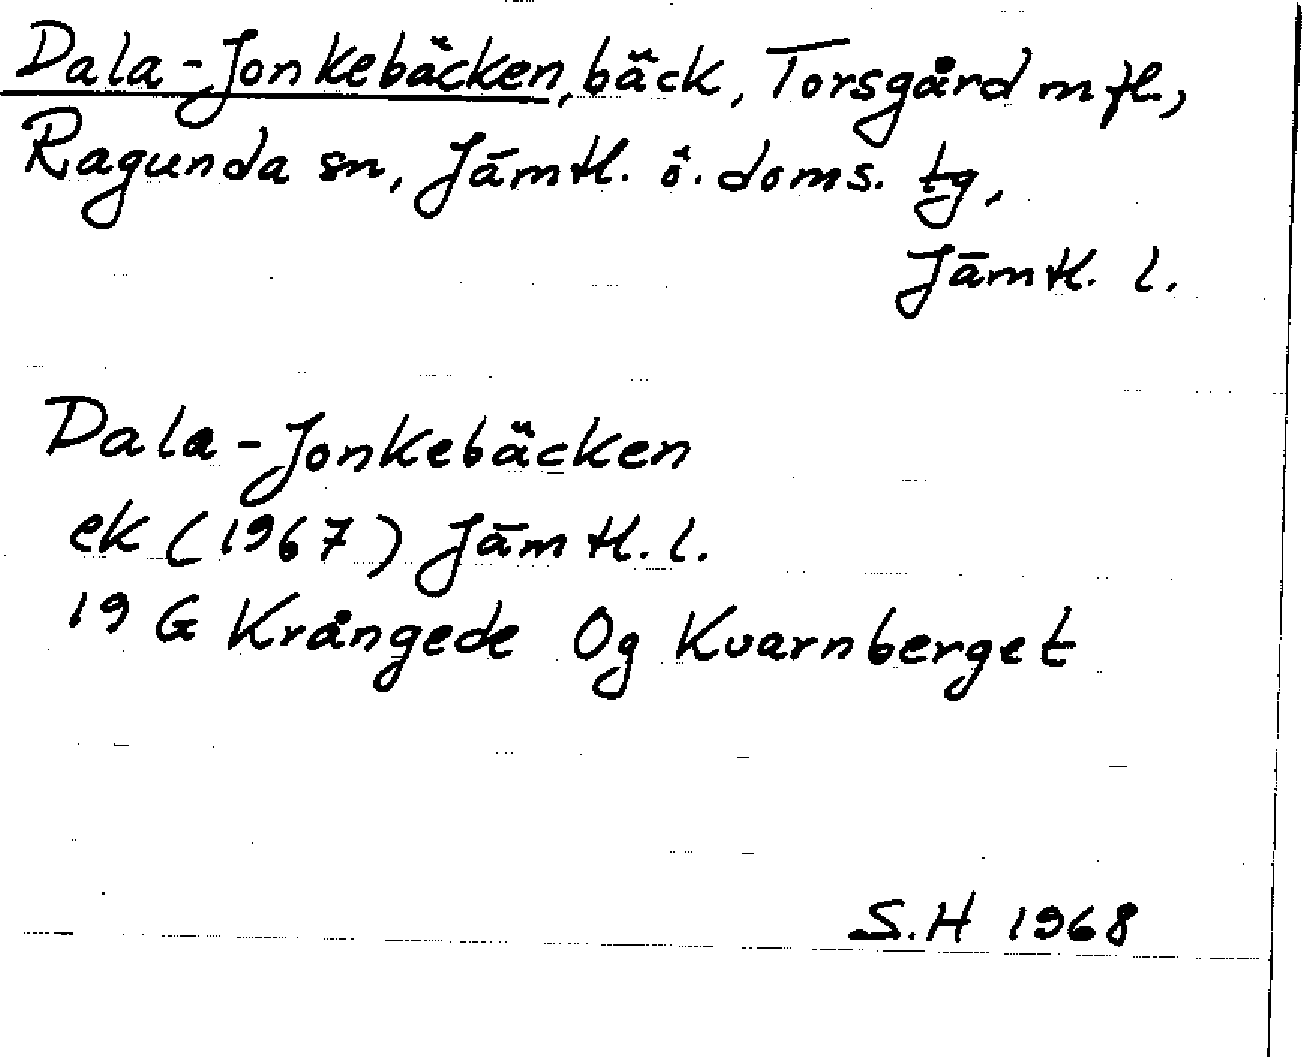 Dala-Jonkebäcken, bäck, Torsgård m fl.,
Ragunda sn, Jämtl. ö. doms. tg,
Jämtl. l.
Dala-Jonkebäcken
ek (1967) Jämtl. l.
19 G Krångede 0g Kvarnberget
S.H 1968